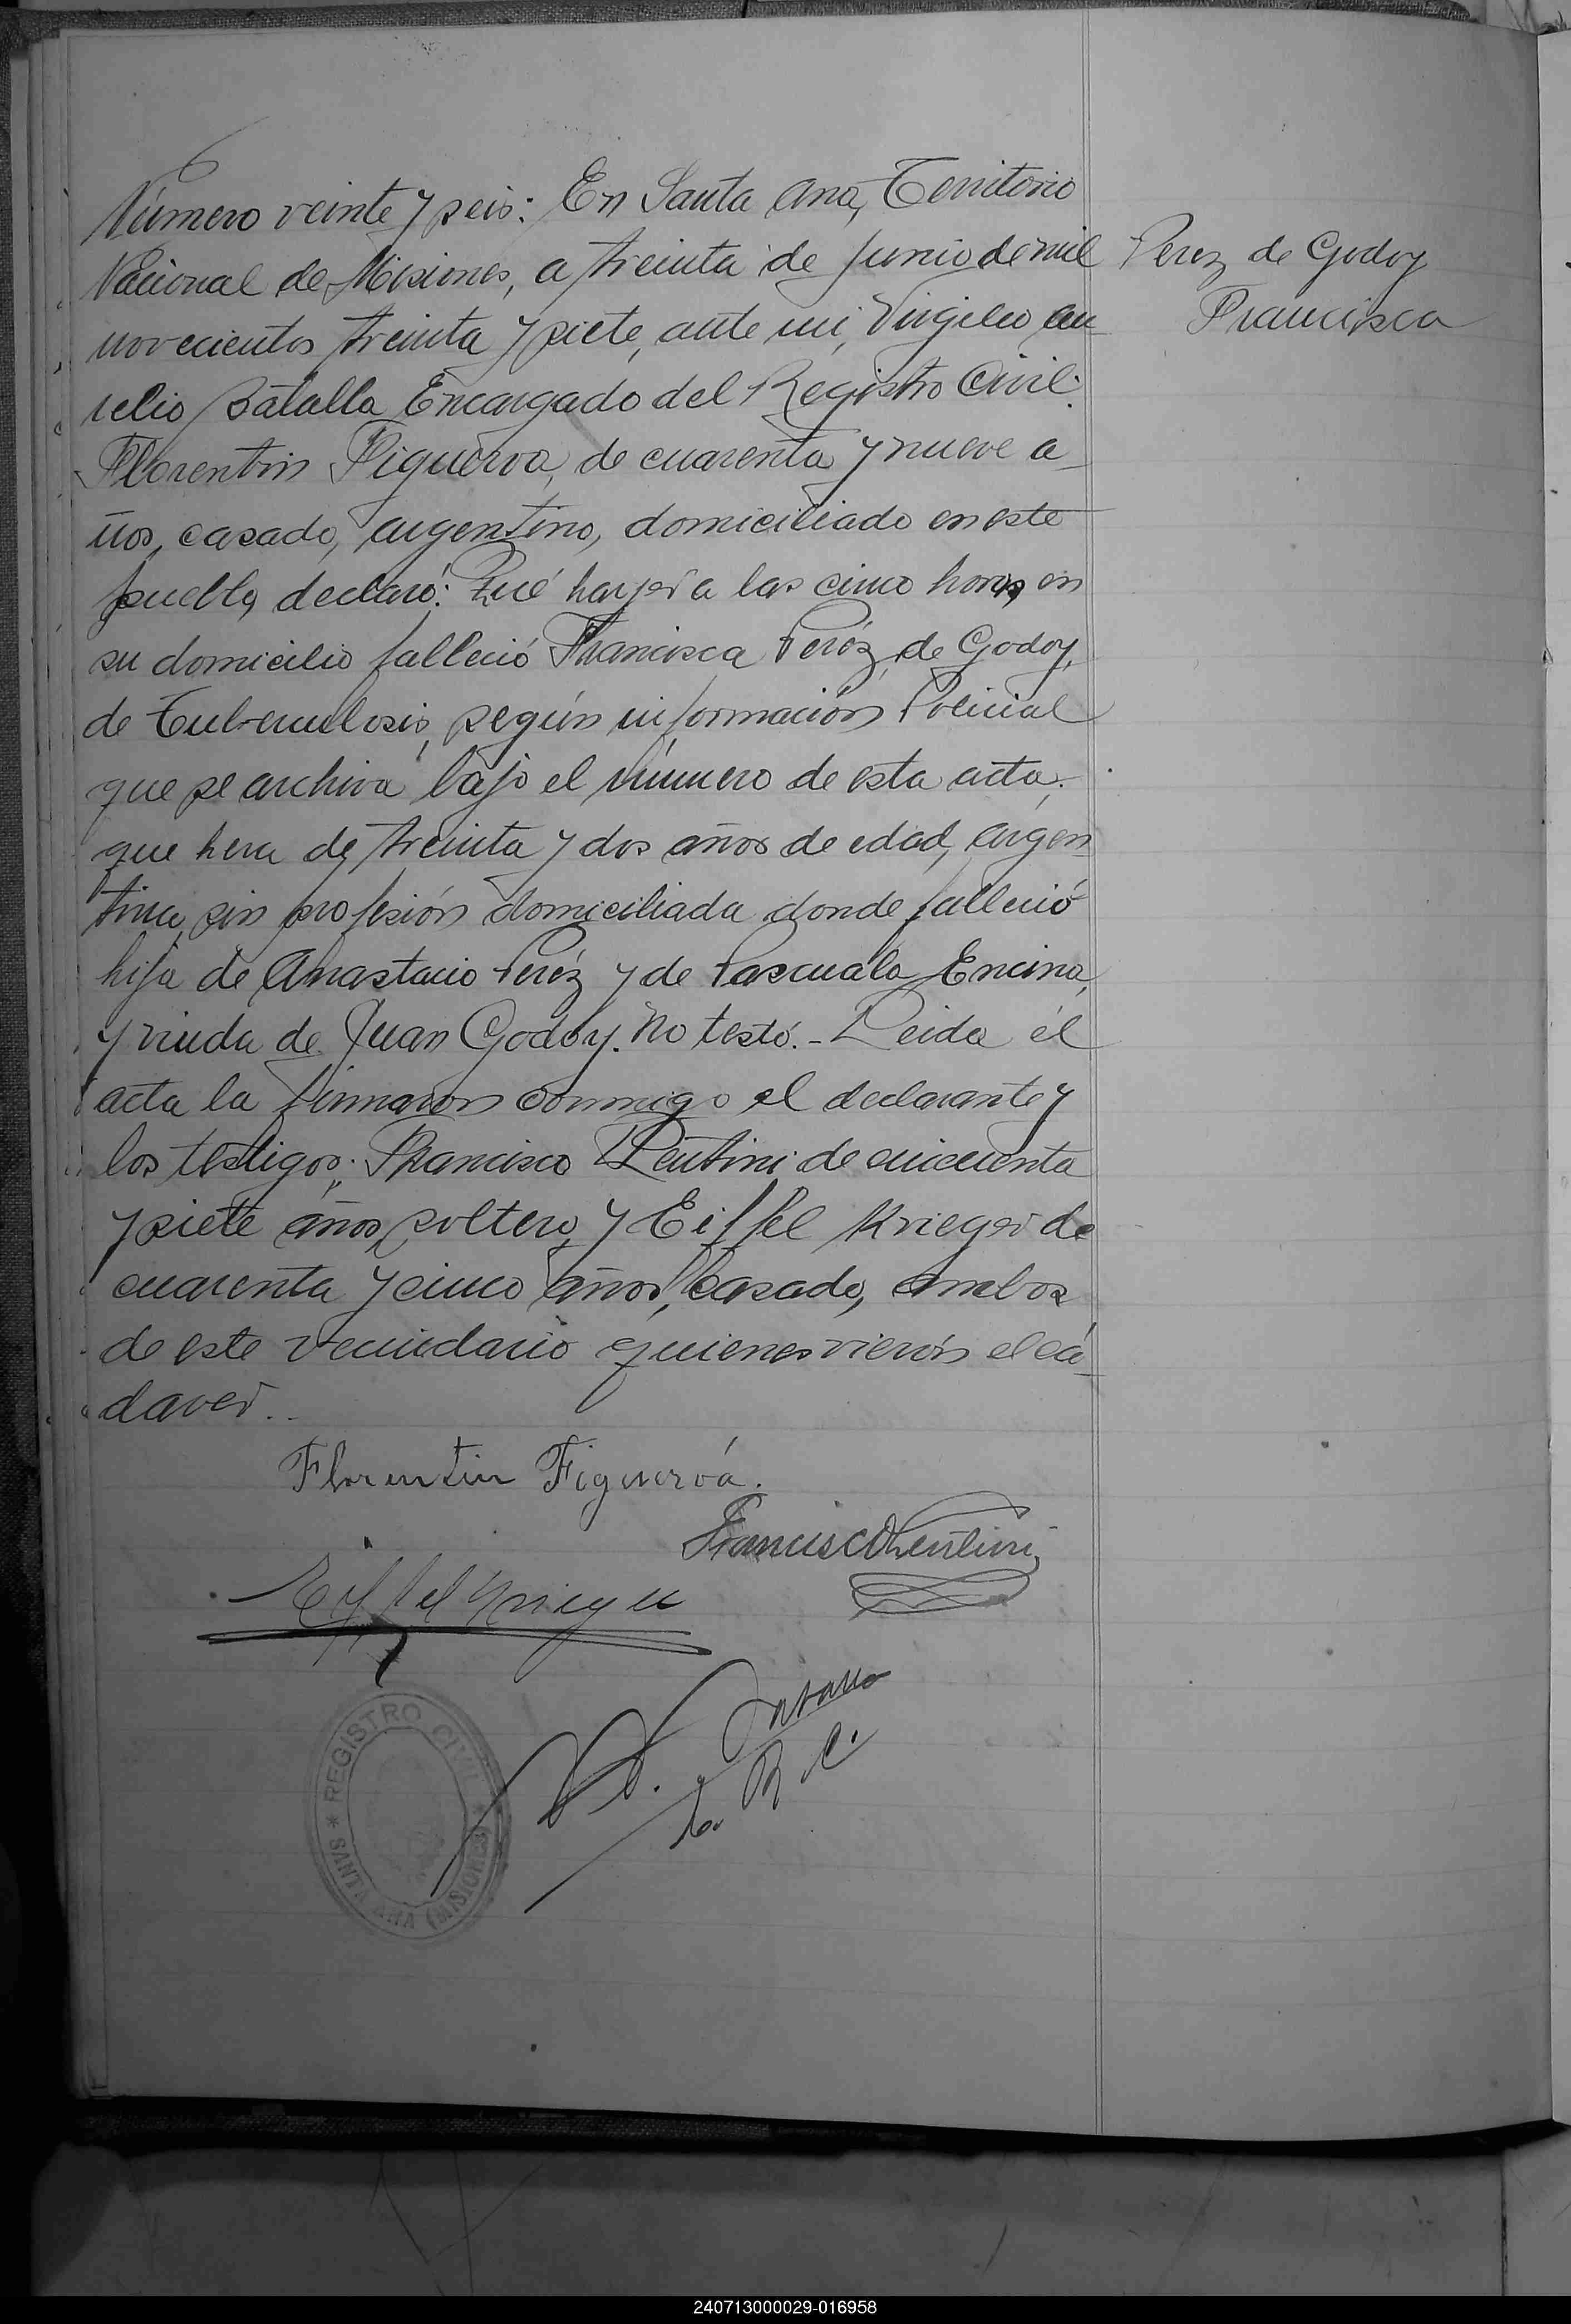 Número veinte y seis: En Santa Ana, Territorio
Nacional de Misiones, a treinta de Junio de mil
novecientos treinta y siete, ante mi, Virgilio Au
relio Batalla Encargado del Registro Civil.
Florentin Figueroa, de cuarenta y nueve a-
ños, casado, argentino, domiciliado en este
pueblo, declaró: Qué hayer a las cinco horas, en
su domicilio falleció Francisca Peréz de Godoy,
de Tuberculosis, según información Policial
que se archiva bajo el número de esta acta;
que hera de treinta y dos años de edad, argen
tina, sin profesión domiciliada donde falleció
hija de Anastacio Peréz y de Pascuala Encina,
y viuda de Juan Godoy. No testó.- Leida el
acta la firmaron conmigo el declarante y
los testigos: Francisco Lentini de cincuenta
y siete años, soltero, y Eiffel Krieger de
cuarenta y cinco años, casado, ambos
de este vecindario quienes vierón el cá
daver..
Perez de Godoy
Francisca
Florentin Figueroá.
Francisco Lentini
Eiffel Krieger
V. A. Batalla
E. R. C.
* REGISTRO CIVIL *
SANTA ANA (MISIONES)
240713000029-016958